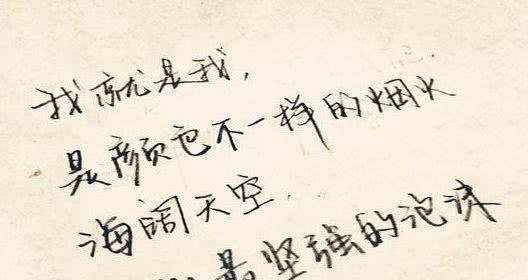 我就是我，
是颜色不一样的烟火
海阔天空.
最坚强的泡沫